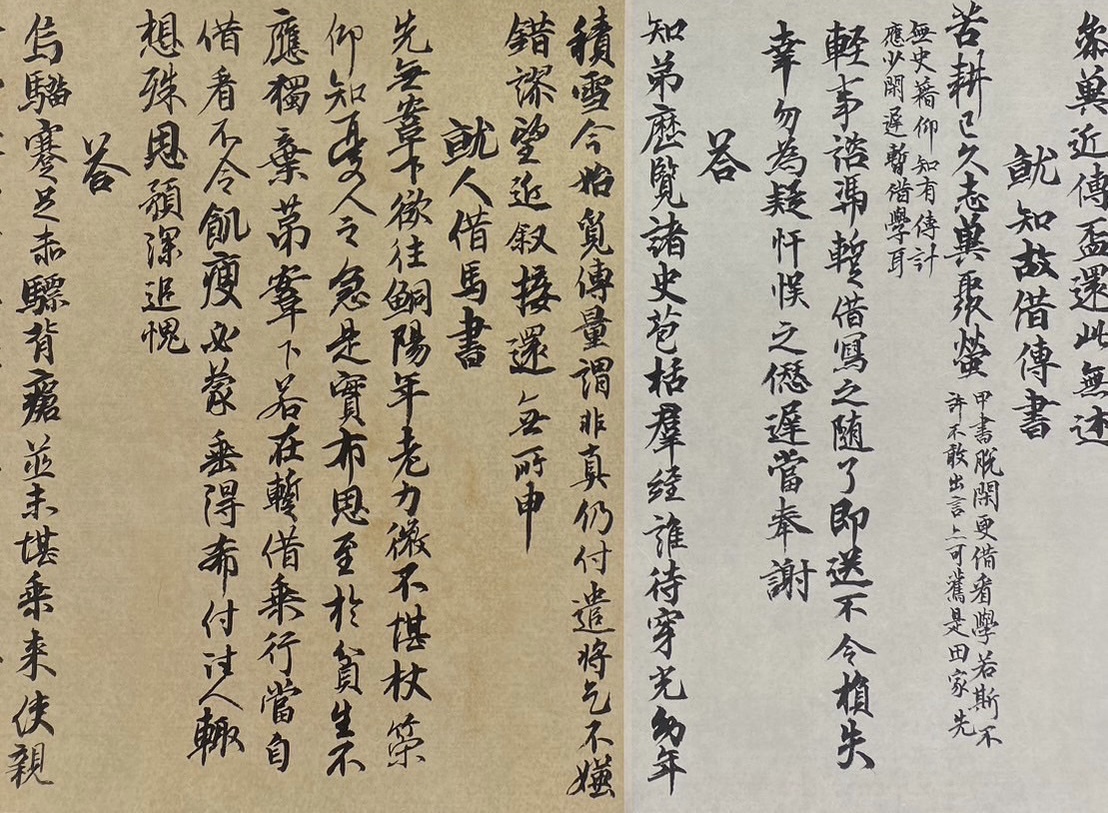 冀近傳盃還此無述
就知故借傳書
苦耕已久志冀聚螢
甲書脫閑更借看學若斯不
許不敢出言上可舊是田家先
無史籍仰知有傳計
應少閑遲暫借學耳
輕事諮馮暫借寫之随了即送不令損失
幸勿為疑忏悮之僁遲當奉謝
荅
知弟歷覽諸史苞括羣經誰待穿光幼年
積雪今始覓傳量謂非真仍付遣將乞不嫌
錯謬望近叙接還無所申
就人借馬書
先無下欲往鮦陽年老力微不堪杖策
仰知憂人之急是實布恩至於貧生不
應獨棄弟下若在暫借乘行當自
借看不令飢瘦必蒙垂得希付往人輙
想殊恩預深追愧
荅
烏騮蹇足赤驃背瘡並未堪乘来使親